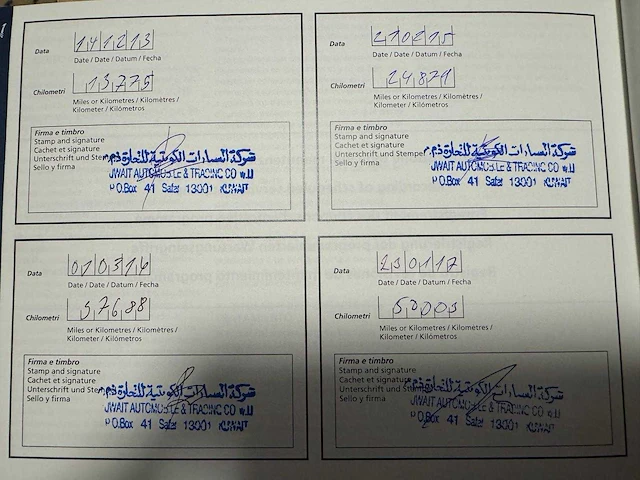 Data
141213
Date / Date / Datum / Fecha
Chilometri
13,775
Miles or Kilometres / Kilomètres /
Kilometer / Kilómetros
Firma e timbro
Stamp and signature
Cachet et signature
Unterschrift und Stempel
Sello y firma
شركة السيارات الكويتية للتجارة ذ.م.م
JWAIT AUTOMOBILE & TRADING CO W.L.L
P.O.Box 41 Safat 13001 KUWAIT
Data
210215
Date / Date / Datum / Fecha
Chilometri
Miles or Kilometres / Kilomètres /
Kilometer / Kilómetros
Firma e timbro
Stamp and signature
Cachet et signature
Unterschrift und Stempel
Sello y firma
شركة السيارات الكويتية للتجارة ذ.م.م
JWAIT AUTOMOBILE & TRADING CO W.L.L
P.O.Box 41 Safat 13001 KUWAIT
Data
010316
Date / Date / Datum / Fecha
Chilometri
37688
Miles or Kilometres / Kilomètres /
Kilometer / Kilómetros
Firma e timbro
Stamp and signature
Cachet et signature
Unterschrift und Stempel
Sello y firma
شركة السيارات الكويتية للتجارة ذ.م.م
JWAIT AUTOMOBILE & TRADING CO W.L.L
P.O.Box 41 Safat 13001 KUWAIT
Data
230117
Date / Date / Datum / Fecha
Chilometri
50003
Miles or Kilometres / Kilomètres /
Kilometer / Kilómetros
Firma e timbro
Stamp and signature
Cachet et signature
Unterschrift und Stempel
Sello y firma
شركة السيارات الكويتية للتجارة ذ.م.م
JWAIT AUTOMOBILE & TRADING CO W.L.L
P.O.Box 41 Safat 13001 KUWAIT